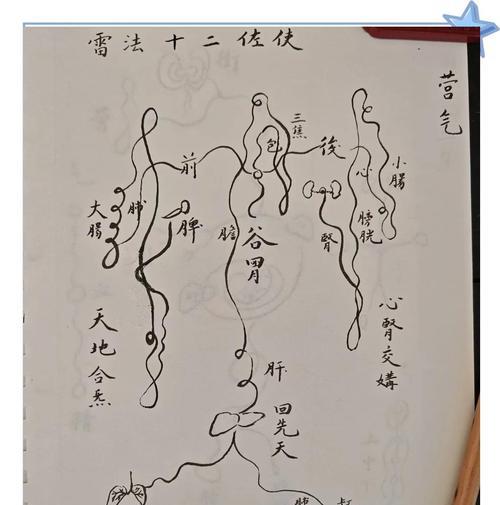 雷法十二佐使
营气
三焦
包
前
後
心
小腸
大腸
肺
脾
膽
谷胃
腎
膀胱
天地合炁
心腎交媾
肝
回先天
肺